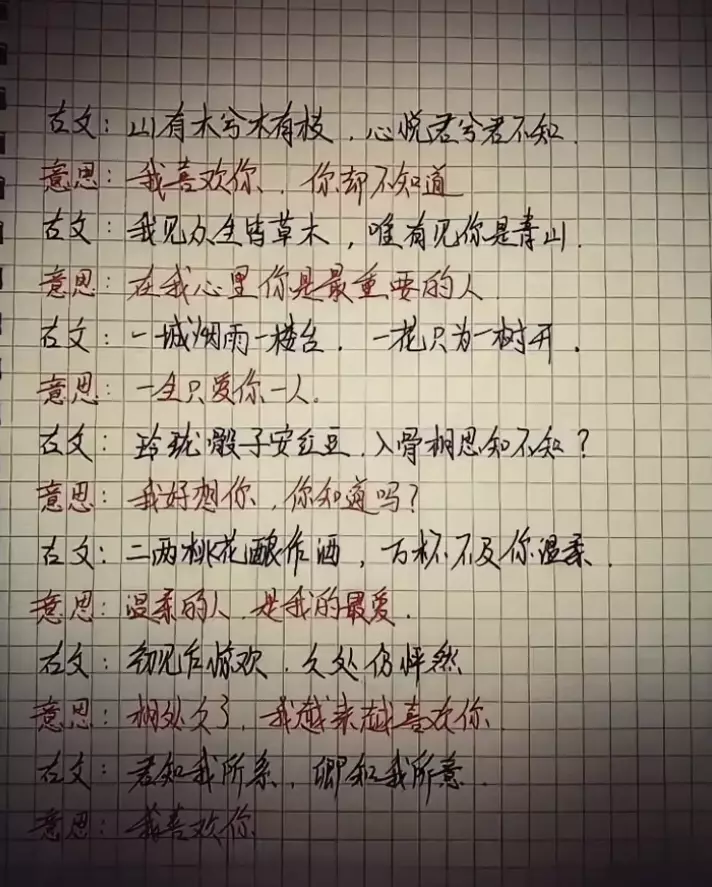 古文：山有木兮木有枝，心悦君兮君不知．
意思：我喜欢你，你却不知道
古文：我见众生皆草木，唯有见你是青山．
意思：在我心里你是最重要的人．
古文：一城烟雨一楼台，一花只为一树开．
意思：一生只爱你一人．
古文：玲珑骰子安红豆，入骨相思知不知？
意思：我好想你，你知道吗？
古文：二两桃花酿作酒，万杯不及你温柔．
意思：温柔的人，是我的最爱．
古文：初见乍惊欢，久处仍怦然
意思：相处久了，我越来越喜欢你．
古文：君知我所系，卿知我所意．
意思：我喜欢你